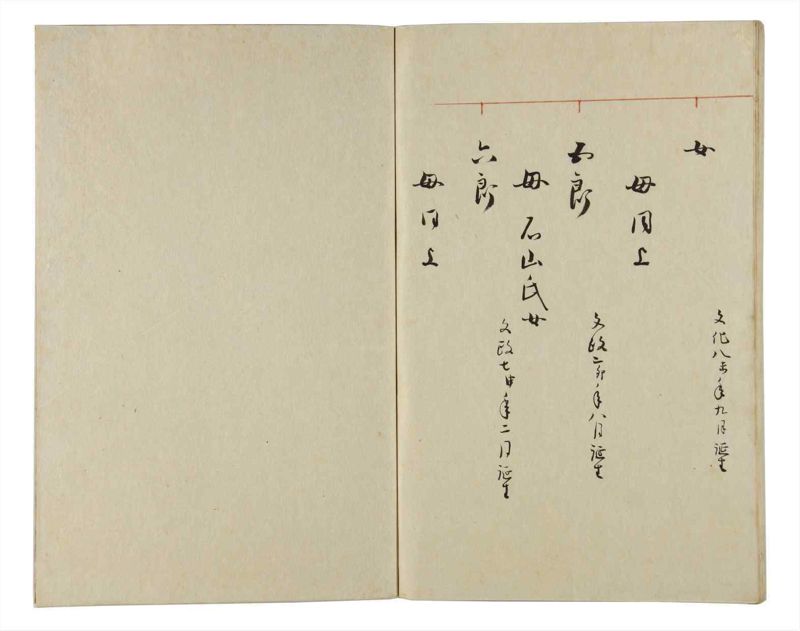 女
母同上
文化八未年九月誕生
五郎
母 石山氏女
文政二卯年八月誕生
六郎
母同上
文政七申年二月誕生